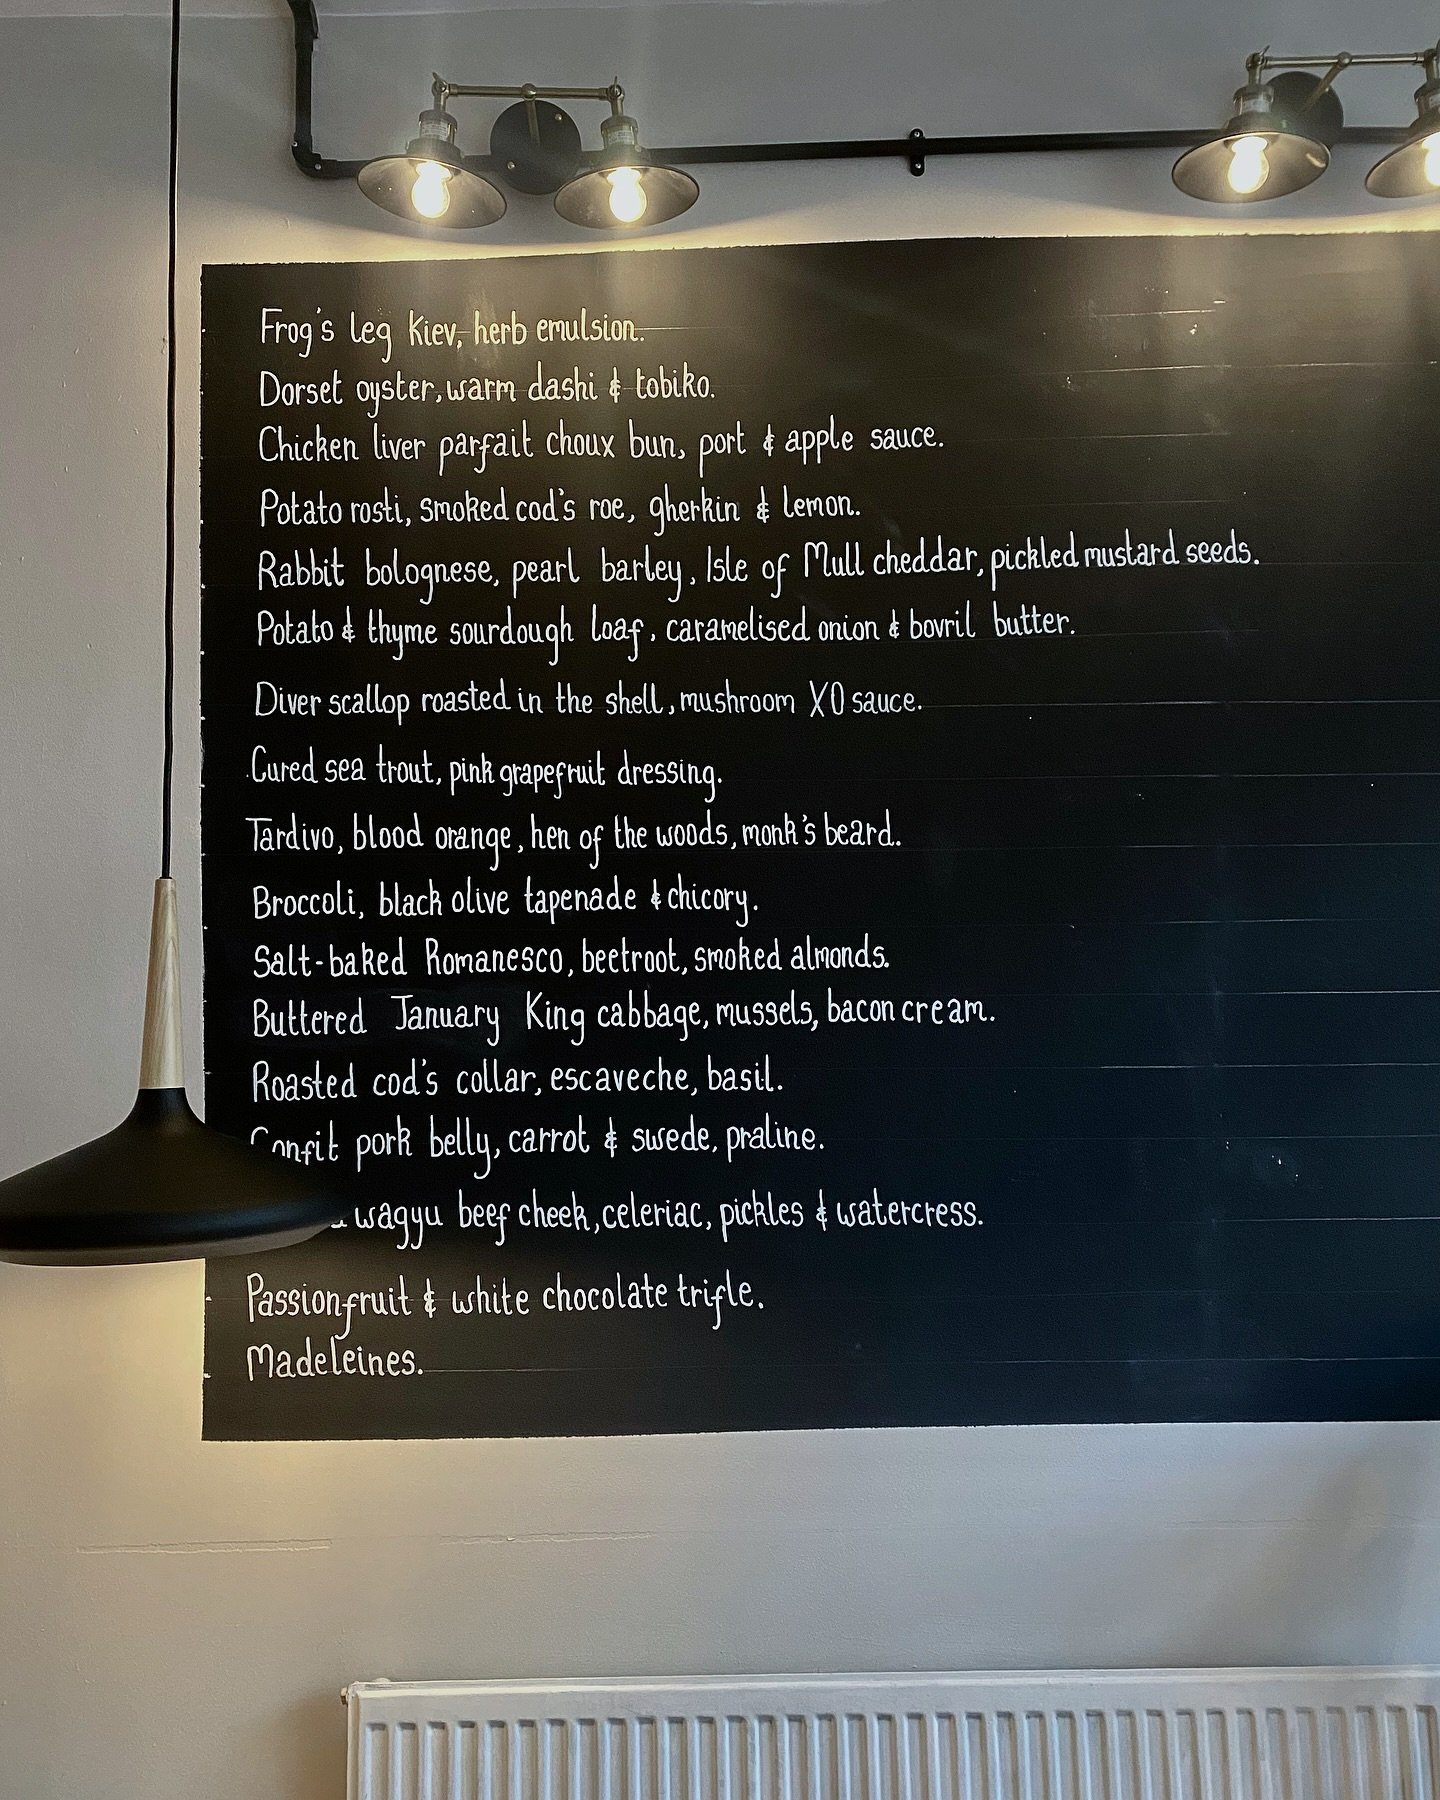 Frog's leg Kiev, herb emulsion.
Dorset oyster, warm dashi & tobiko.
Chicken liver parfait choux bun, port & apple sauce.
Potato rosti, smoked cod's roe, gherkin & lemon.
Rabbit bolognese, pearl barley, Isle of Mull cheddar, pickled mustard seeds.
Potato & thyme sourdough loaf, caramelised onion & bovril butter.
Diver scallop roasted in the shell, mushroom XO sauce.
Cured sea trout, pink grapefruit dressing.
Tardivo, blood orange, hen of the woods, monk's beard.
Broccoli, black olive tapenade & chicory.
Salt-baked Romanesco, beetroot, smoked almonds.
Buttered January King cabbage, mussels, bacon cream.
Roasted cod's collar, escaveche, basil.
Confit pork belly, carrot & swede, praline.
wagyu beef cheek, celeriac, pickles & watercress.
Passionfruit & white chocolate trifle.
Madeleines.